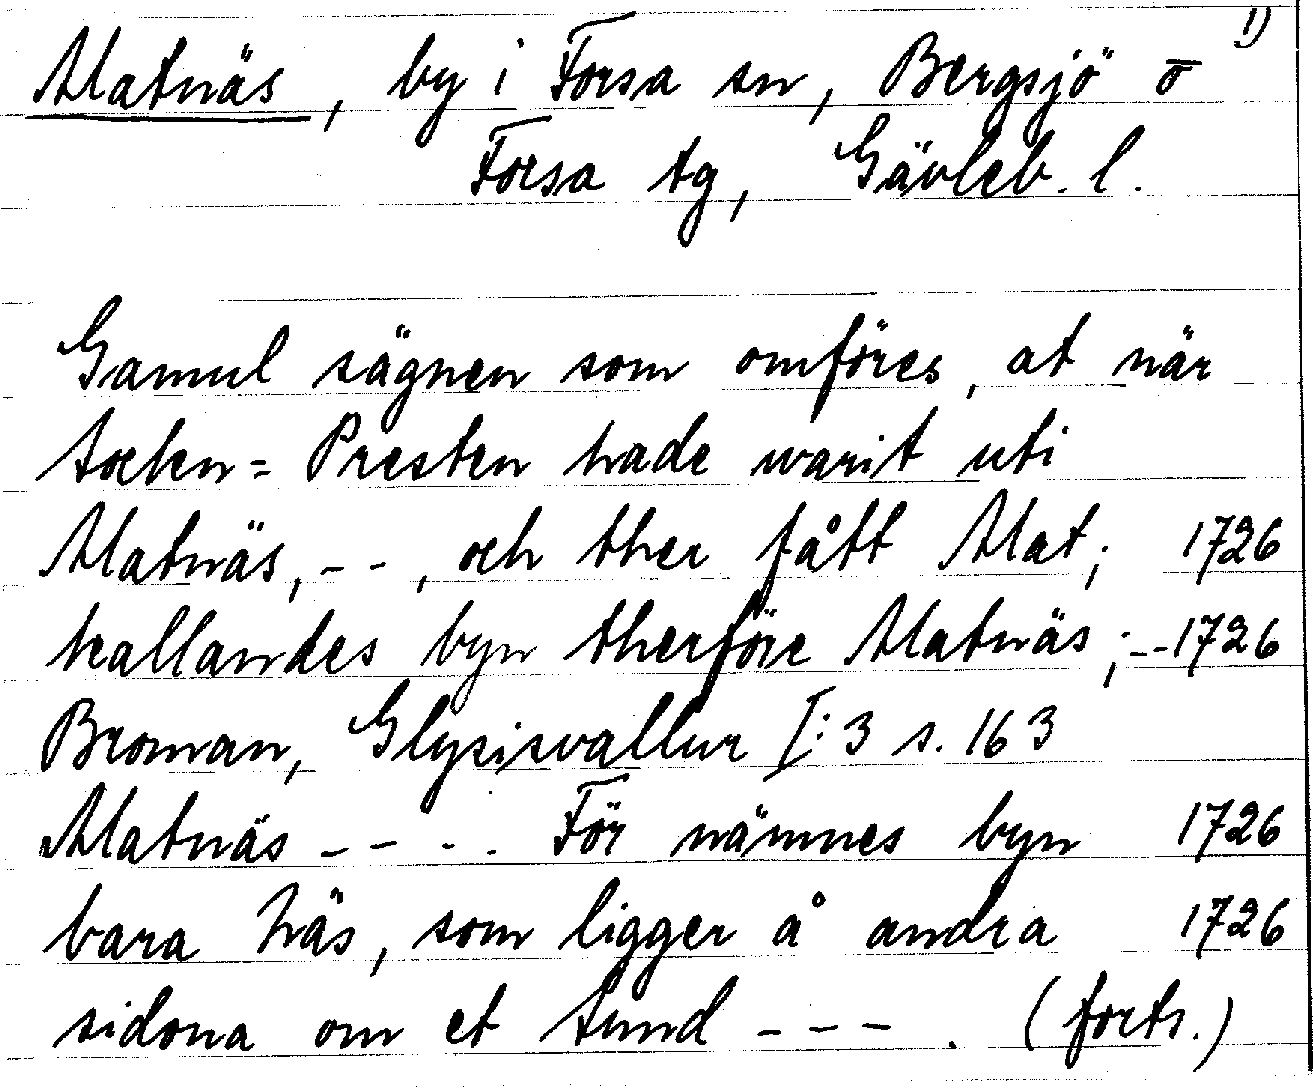 Matnäs, by i Forsa sn, Bergsjö o 1)
Forsa tg, Gävleb. l.
Gamul sägnen som omföres, at när
Presten hade warit uti
Matnäs, - - , och ther fått Mat; 1726
kallandes byn therföre Matnäs; -- 1726
Broman, Glysisvallur I:3 s. 163
Matnäs - - - . För nämnes byn 1726
bara Näs, som ligger å andra 1726
sidona om et Sund - - - . (forts.)